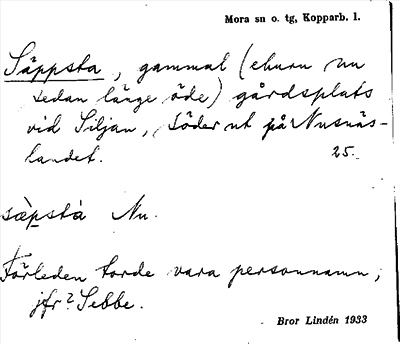 Mora sn o. tg, Kopparb. l.
Säppsta, gammal (ehuru nu
sedan länge öde) gårdsplats
vid Siljan, söder ut på Nusnäs-
landet. 25.
sæ̀pstà Nu.
Förleden torde vara personnamn,
jfr? Sebbe.
Bror Lindén 1933